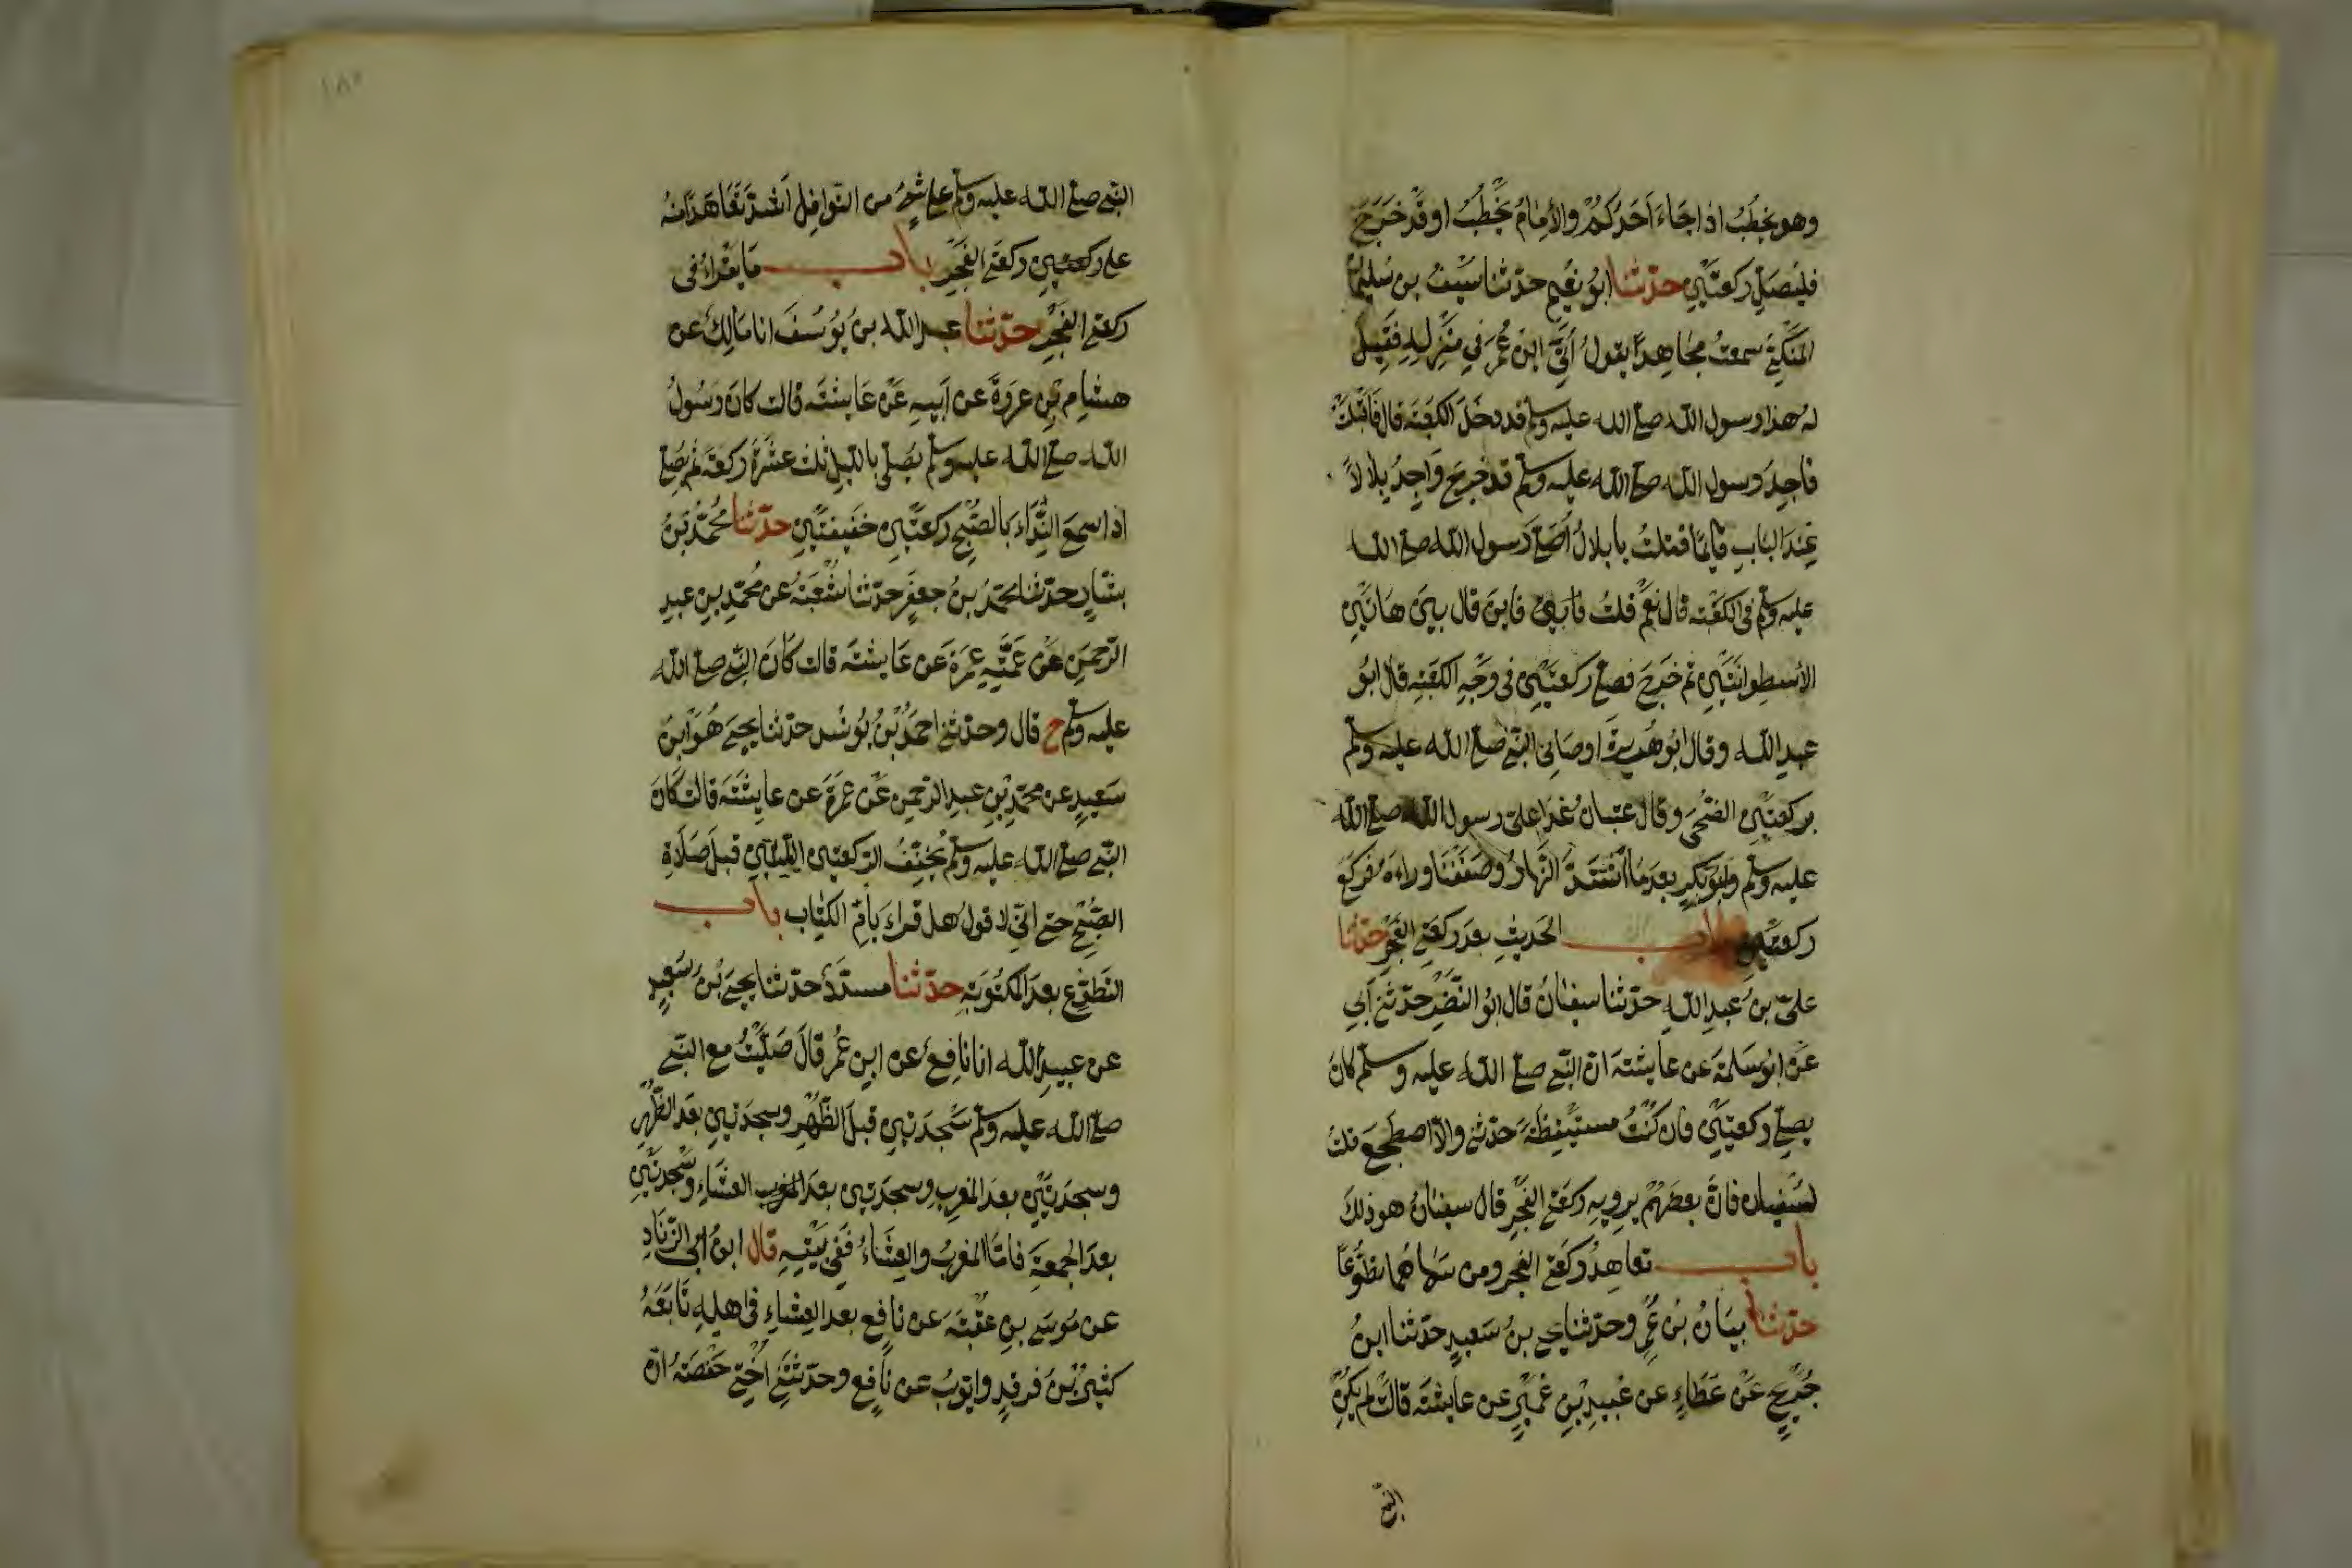 وهو يخطب اذا جاء احدكم والامام يخطب او قد خرج
فليصل ركعتين حدثنا ابو نعيم حدثنا سيف بن سليمان
المكي سمعت مجاهدا يقول أتي ابن عمر في منزله فقيل
له هذا رسول الله صلى الله عليه وسلم قد دخل الكعبة قال فاقبلت
فاجد رسول الله صلى الله عليه وسلم قد خرج واجد بلالا
عند الباب قائما فقلت يا بلال أصلى رسول الله صلى الله
عليه وسلم في الكعبة قال نعم قلت فاين قال بين هاتين
الأسطوانتين ثم خرج فصلى ركعتين في وجه الكعبة قال ابو
عبد الله وقال ابو هريرة اوصاني النبي صلى الله عليه وسلم
بركعتي الضحى وقال عتبان غدا على رسول الله صلى الله
عليه وسلم وابو بكر بعد ما اشتد النهار وصففنا وراءه فركع
ركعتين باب الحديث بعد ركعتي الفجر حدثنا
علي بن عبد الله حدثنا سفيان قال ابو النضر حدثني أبي
عن ابو سلمة عن عايشة ان النبي صلى الله عليه وسلم كان
يصلي ركعتين فان كنت مستيقظة حدثني والا اضطجع قلت
لسفيان فان بعضهم يرويه ركعتي الفجر قال سفيان هو ذلك
باب تعاهد ركعتي الفجر ومن سماهما تطوعا
حدثنا بيان بن عمرو حدثنا يحيى بن سعيد حدثنا ابن
جريج عن عطاء عن عبيد بن عمير عن عايشة قالت لم يكن
النبي
١٨٠
النبي صلى الله عليه وسلم على شيء من النوافل اشد تعاهدا منه
على ركعتين ركعتي الفجر باب ما يقراء في
ركعتي الفجر حدثنا عبد الله بن يوسف انا مالك عن
هشام بن عروة عن أبيه عن عايشة قالت كان رسول
الله صلى الله عليه وسلم يصلي بالليل ثلث عشرة ركعة ثم يصلي
اذا سمع النداء بالصبح ركعتين خفيفتين حدثنا محمد بن
بشار حدثنا محمد بن جعفر حدثنا شعبة عن محمد بن عبد
الرحمن عن عمته عمرة عن عايشة قالت كان النبي صلى الله
عليه وسلم ح قال وحدثني احمد بن يونس حدثنا يحيى هو ابن
سعيد عن محمد بن عبد الرحمن عن عمرة عن عايشة قالت كان
النبي صلى الله عليه وسلم يخفف الركعتين اللتين قبل صلاة
الصبح حتى اني لاقول هل قراء بأم الكتاب باب
التطوع بعد المكتوبة حدثنا مسدد حدثنا يحيى بن سعيد
عن عبيد الله انا نافع عن ابن عمر قال صليت مع النبي
صلى الله عليه وسلم سجدتين قبل الظهر وسجدتين بعد الظهر
وسجدتين بعد المغرب وسجدتين بعد المغرب العشاء وسجدتين
بعد الجمعة فاما المغرب والعشاء ففي بيته قال ابن ابي الزناد
عن موسى بن عقبة عن نافع بعد العشاء في اهله تابعه
كثير بن فرقد وايوب عن نافع وحدثتني اختي حفصة ان